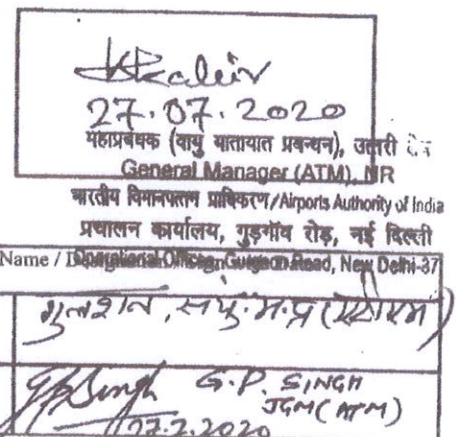 27.07.2020
महाप्रबंधक (वायु यातायात प्रबन्धन), उत्तरी
General Manager (ATM), NR
भारतीय विमानपत्तन प्राधिकरण/Airports Authority of India
प्रचालन कार्यालय, गुड़गाँव रोड़, नई दिल्ली
Name / Operational Offices, Gurgaon Road, New Delhi-37
गुलशन, संयु.म.प्र
GPSingh G.P. SINGH
JGM (ATM)
27.7.2020